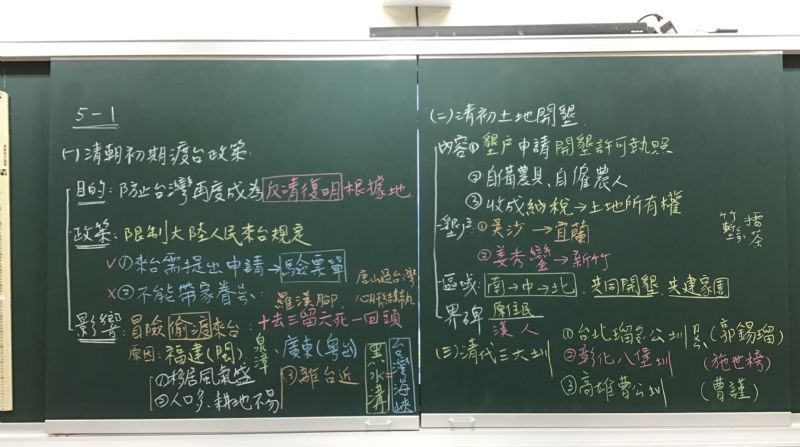 5-1
(一)清朝初期渡台政策
目的:防止台灣再度成為反清復明根據地
政策:限制大陸人民來台規定
✓①來台需提出申請→驗票單
×②不能帶家眷
羅漢腳
唐山過台灣
影響:冒險偷渡來台:十去三留六死一回頭
原因:福建(閩)泉漳、廣東(粵台)
①移居風氣盛
②人口多、耕地不易
③離台近
黑水溝=台灣海峽
(二)清初土地開墾
內容①墾戶申請開墾許可執照
②自備農具,自僱農人
③收成納稅→土地所有權
墾戶:①吳沙→宜蘭
②姜秀鑾→新竹
竹塹
擂茶
區域:南→中→北,共同開墾,共建家園
界碑 原住民
漢人
(三)清代三大圳
①台北瑠公圳 (郭錫瑠)
②彰化八堡圳 (施世榜)
③高雄曹公圳 (曹謹)